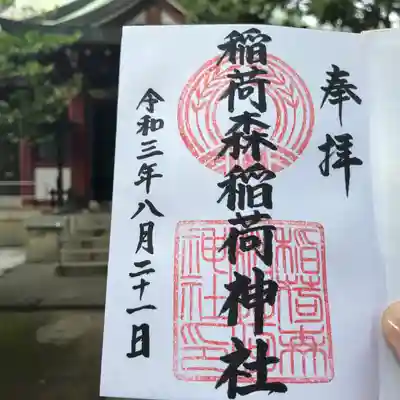 奉拝
稲荷森稲荷神社
令和三年八月二十一日
稲荷森
稲荷
神社印